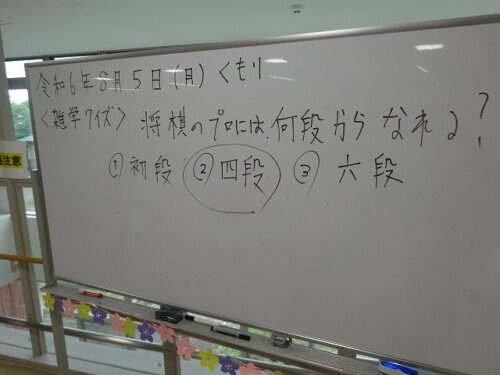 令和6年8月5日(月)くもり
<雑学クイズ> 将棋のプロには、何段からなれる?
①初段 ②四段 ③六段
注意